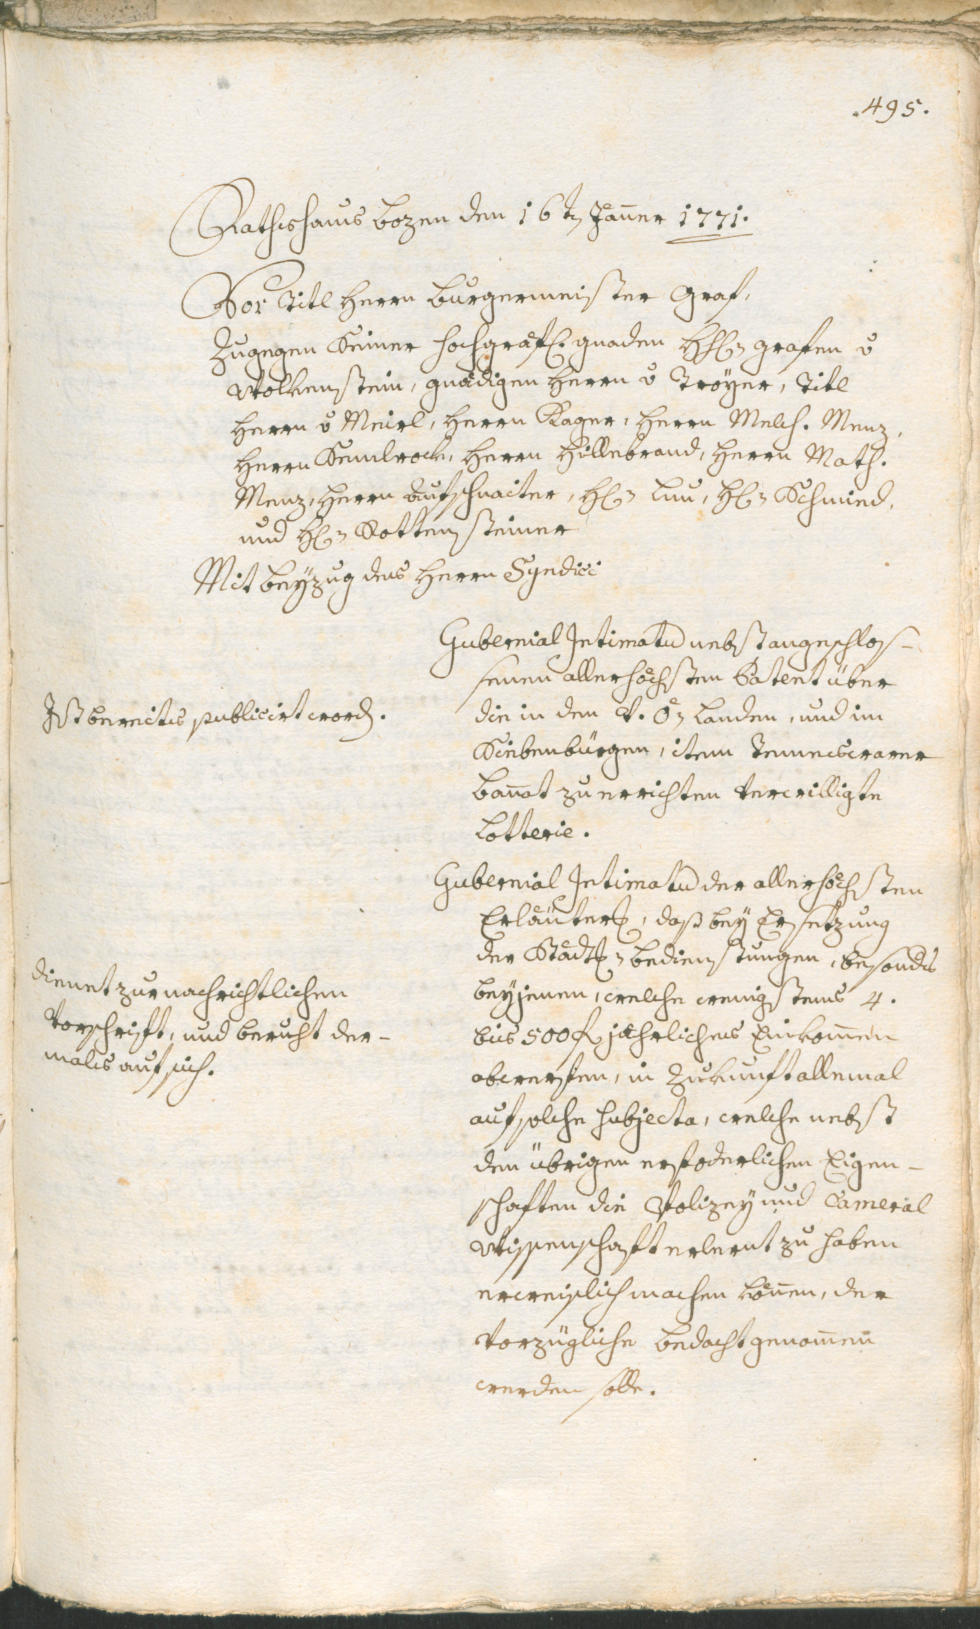 .495.
Rathshaus Bozen den 16t. Jañer 1771.
Vor Titl Herrn Burgermeister Graf,
Zugegen Seiner hochgräfl. gnaden H: grafen v
Wolkenstein, gnädigen Herrn v Troÿer, Titl
Herrn v Meirl, Herrn Kager, Herrn Melch. Menz,
Herrn Semlrock, Herrn Hillebrand, Herrn Math.
Menz, Herrn Aufschnaiter, H: Luu, H: Schmied,
und H: Rottensteiner
Mit beÿzug des Herrn Syndici
Gubernial Intimatum nebst angeschlos-
senen allerhöchsten Patent über
die in den V. Ö. Landen, und im
Siebenbürgen, item Temeswarer
Bañat zu errichten verwilligte
Lotterie.
Ist bereits publicirt word.
Gubernial Intimatum der allerhöchsten
Erläuter, daß beÿ Ersetzung
der Städt bedienstungen, besonds
beÿ jenen, welche wenigstens 4.
bis 500 f jährliches Einkom̃en
abwerfen, in Zukunft allemal
auf solche subjecta, welche nebst
den übrigen erfoderlichen Eigen-
schaften die Polizeÿ und Cameral
Wissenschaft erlernt zu haben
erweislich machen köñen, der
vorzügliche bedacht genom̃en
werden solle.
dienet zur nachrichtlichen
Vorschrift, und beruht der-
mals auf sich.